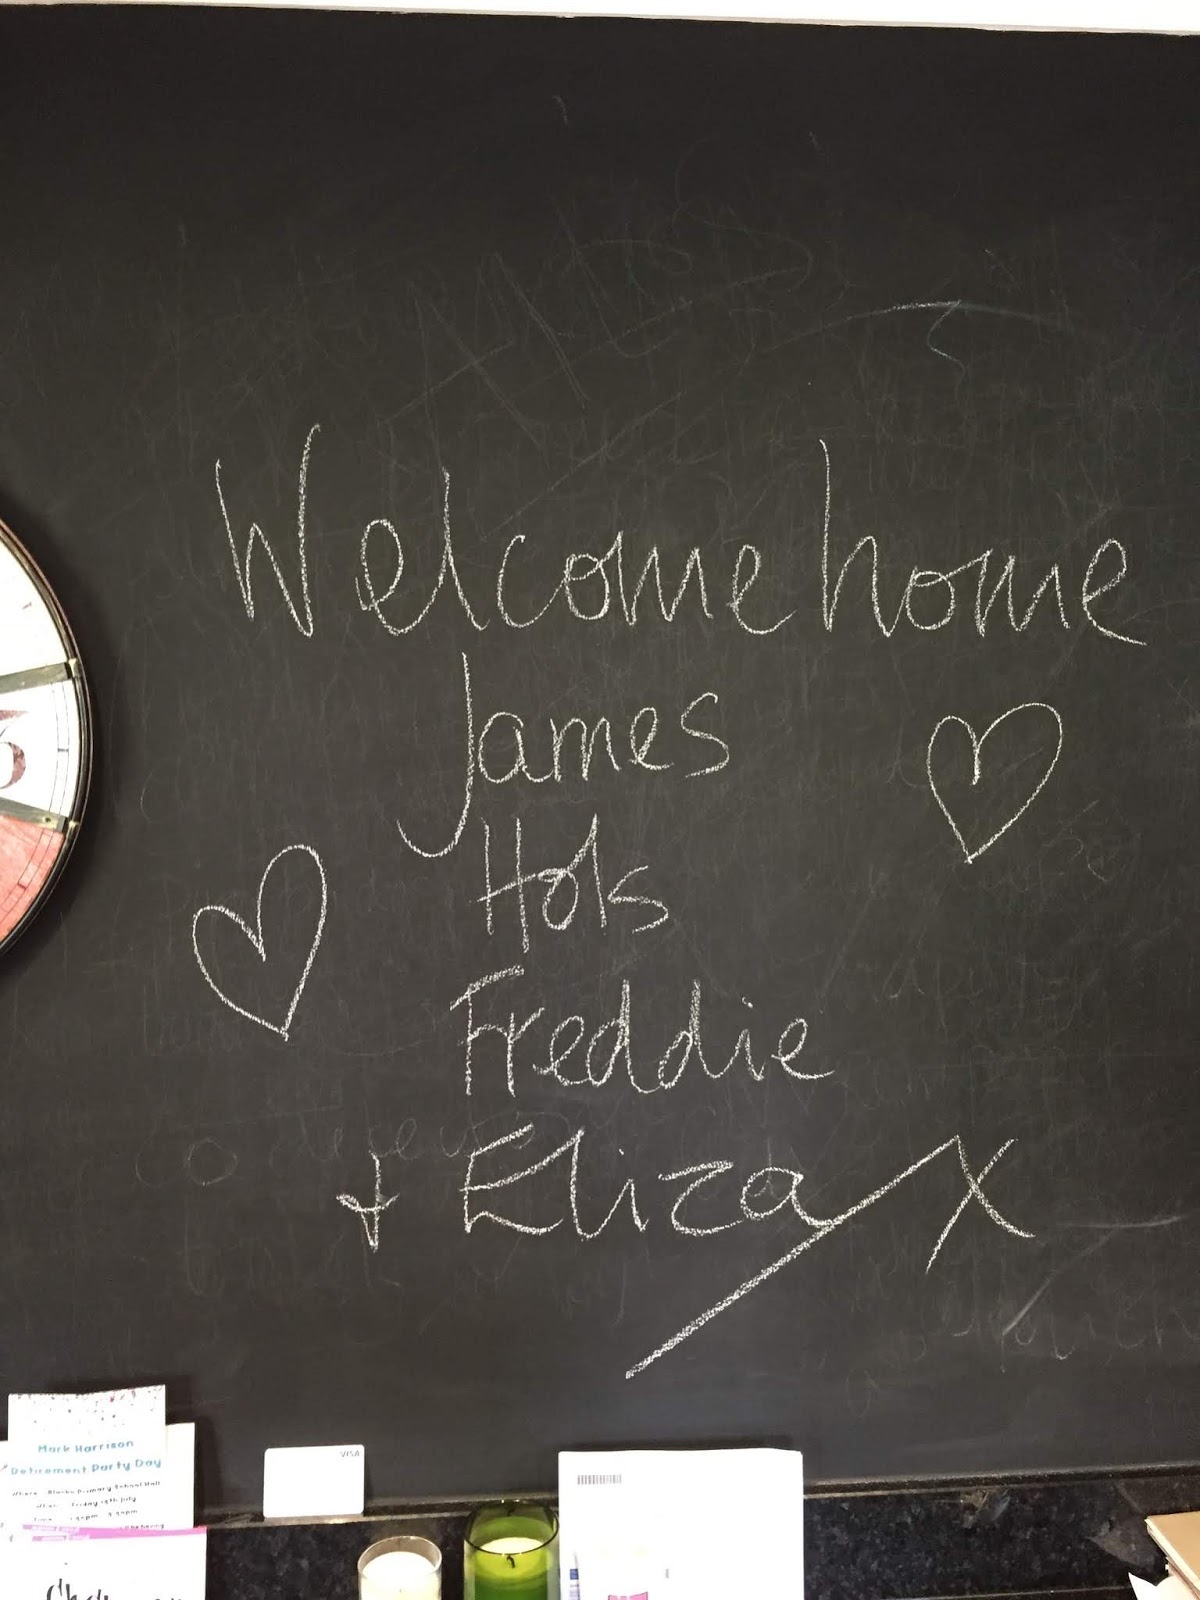 Welcome home
James
Hols
Freddie
+ Eliza X
3
Mark Harrison
Retirement Party Day
Where: Blacko Primary School Hall
When: Friday 19th July
VISA